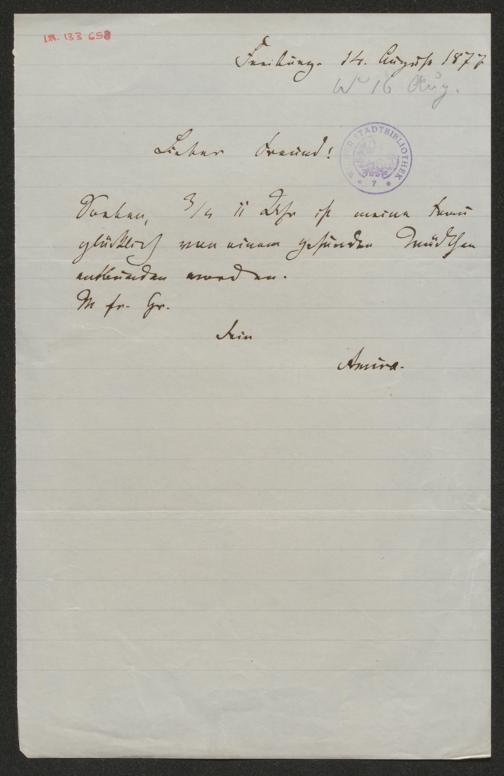 I.N. 133.658
Freiburg. 14. August 1877
W 16 Aug.
Lieber Freund!
STADTBIBLIOTHEK
Soeben, 3/4 11 Uhr ist meine Frau
glücklich von einem gesunden Mädchen
entbunden worden.
M fr. Gr.
Dein
Amira.